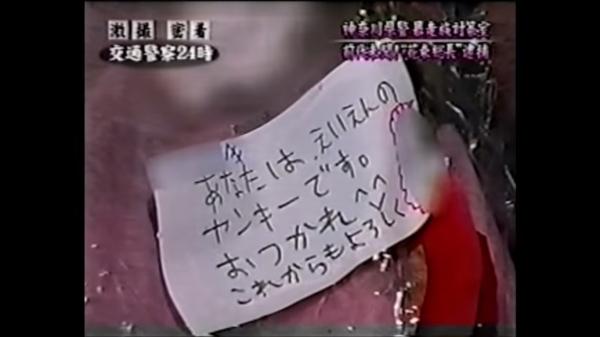 激撮 密着
交通警察24時
神奈川県警 暴走族対策室
前代未聞!"花束総長"逮捕
あなたは、えいえんの
ヤンキーです。
おつかれへへ
これからもよろしく